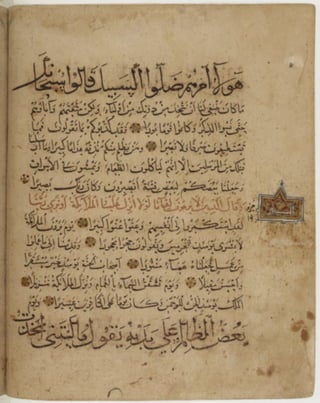 هؤلاء ام هم ضلوا السبيل قالوا سبحانك
ما كان ينبغي لنا ان نتخذ من دونك من اولياء ولكن متعتهم واباءهم
حتى نسوا الذكر وكانوا قوما بورا فقد كذبوكم بما تقولون فما
تستطيعون صرفا ولا نصرا ومن يظلم منكم نذقه عذابا كبيرا وما ارسلنا
قبلك من المرسلين الا انهم لياكلون الطعام ويمشون في الاسواق
وجعلنا بعضكم لبعض فتنة اتصبرون وكان ربك بصيرا
وقال الذين لا يرجون لقاءنا لولا انزل علينا الملئكة او نرى ربنا
لقد استكبروا في انفسهم وعتوا عتوا كبيرا يوم يرون الملئكة
لا بشرى يومئذ للمجرمين ويقولون حجرا محجورا وقدمنا الى ما عملوا
من عمل فجعلناه هباء منثورا اصحاب الجنة يومئذ خير مستقرا
واحسن مقيلا ويوم تشقق السماء بالغمام ونزل الملئكة تنزيلا
الملك يومئذ الحق للرحمن وكان يوما على الكافرين عسيرا ويوم
يعض الظالم على يديه يقول يا ليتني اتخذت